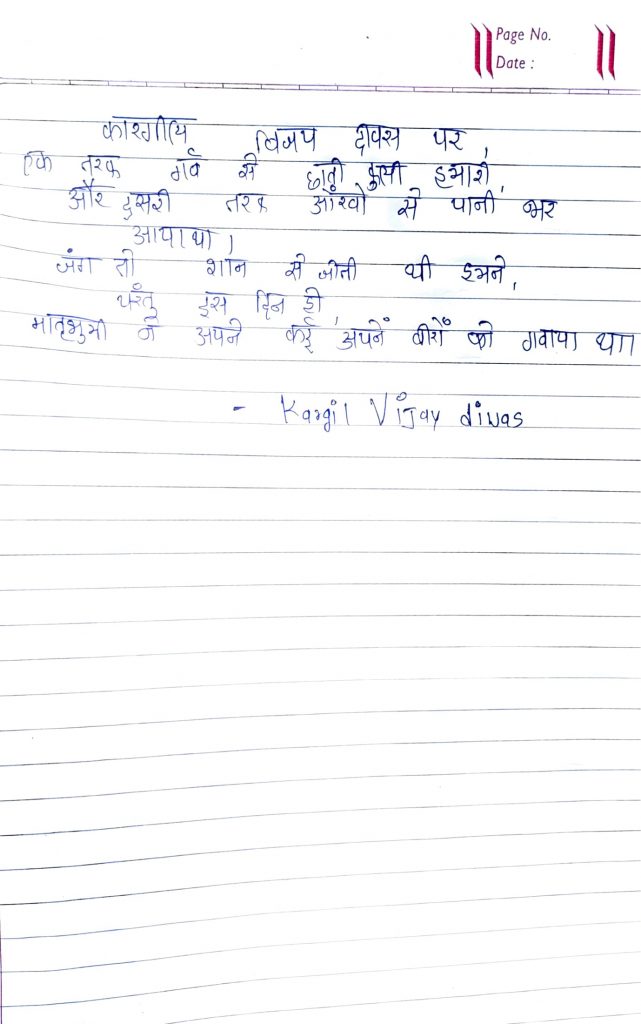 Page No.
Date :
कारगील विजय दीवस पर,
एक तरफ गर्व से छाती फुली हमारी,
और दुसरी तरफ आँखो से पानी भर
आयाथा,
जंग तो शान से जीती थी हमने,
परंतु इस दिन ही,
मातृभुमी ने अपने कई अपनें वीरों को गवाया था।
- Kargil Vijay diwas